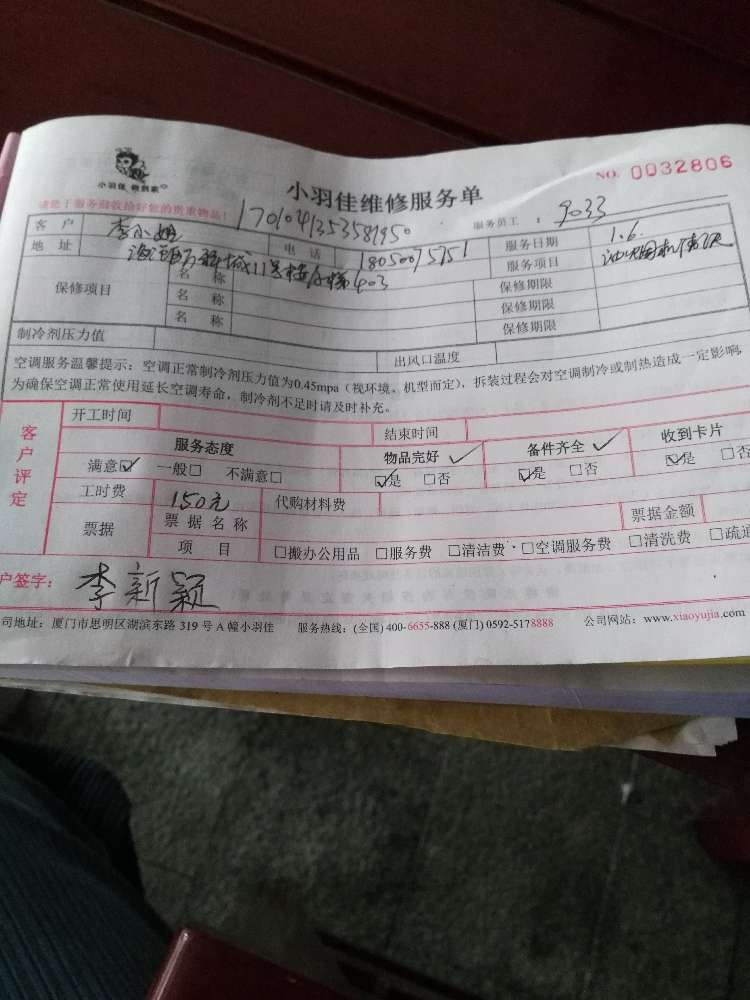 小羽佳 物到家
小羽佳维修服务单
NO. 0032806
请您于服务前收拾好您的贵重物品!
服务员工 : 9033
客户 李小姐 电话 18050075751 服务日期 1.6.
地址 11号楼 403 服务项目
保修项目 名称 保修期限
名称 保修期限
名称 保修期限
制冷剂压力值 出风口温度
空调服务温馨提示:空调正常制冷剂压力值为0.45mpa(视环境、机型而定),拆装过程会对空调制冷或制热造成一定影响,
为确保空调正常使用延长空调寿命,制冷剂不足时请及时补充。
客户评定
开工时间 结束时间
服务态度 物品完好 ✓ 备件齐全 ✓ 收到卡片
满意☑ 一般□ 不满意□ ☑是 □否 ☑是 □否 ☑是 □否
工时费 150元 代购材料费
票据 票据名称 票据金额
项目 □搬办公用品 □服务费 □清洁费 □空调服务费 □清洗费 □疏通
户签字: 李新颖
司地址:厦门市思明区湖滨东路 319 号 A 幢小羽佳 服务热线:(全国) 400-6655-888 (厦门) 0592-5178888 公司网站:www.xiaoyujia.com